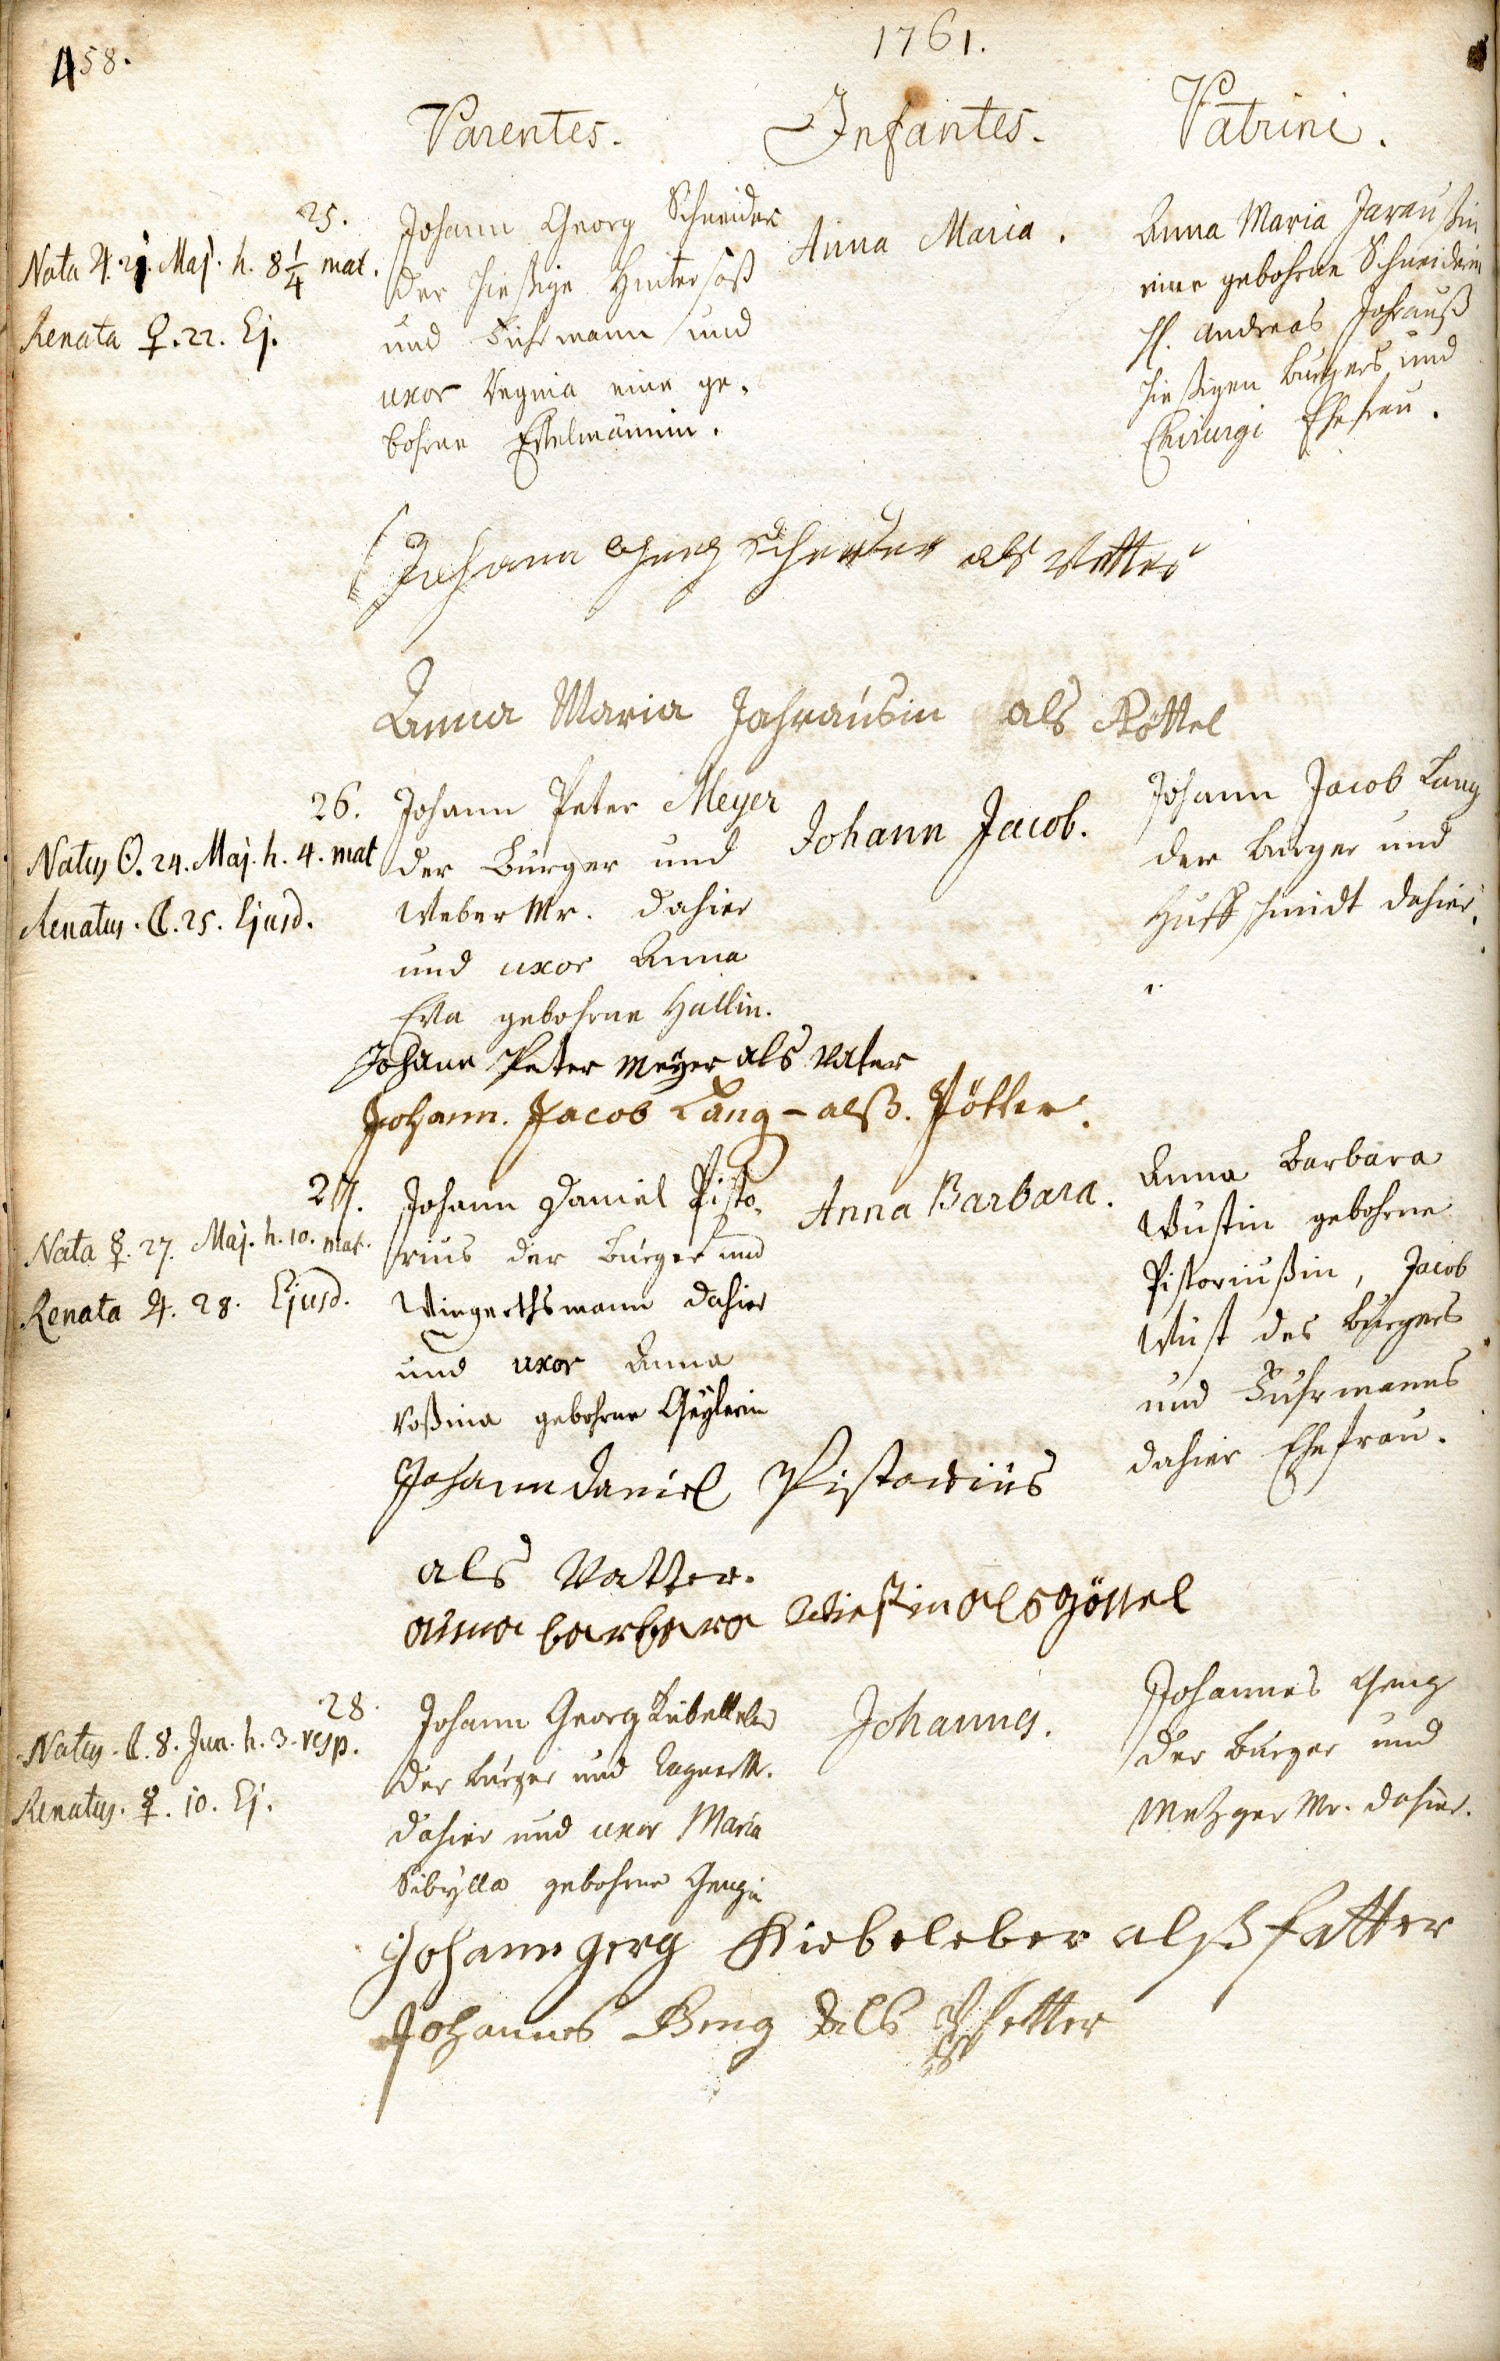 458.
1761.
Parentes. Infantes. Patrini.
25.
Nata ♃. 21. Maj. h. 8 1/4 mat.
Renata ♀. 22. Ej.
Johann Georg Schneider
der hießige Hintersaß
und Fuhrmann und
uxor Regina eine ge-
bohrne Eßelmännin.
Anna Maria.
Anna Maria Jaraußin
eine gebohrne Schneiderin
H. Andreas Jahrauß
hießigen Burgers und
Chirurgi Ehefrau.
Johann Gerg Schneider als Vatter
Anna Maria Jahrausin als Göttel
26.
Natus ☉. 24. Maj. h. 4. mat
Renatus. ☾. 25. Ejusd.
Johann Peter Meyer
der Burger und
Weber Mr. dahier
und uxor Anna
Eva gebohrne Hallin.
Johann Jacob.
Johann Jacob Lang
der Burger und
Huffschmidt dahier.
Johann Peter Meyer als Vater
Johann. Jacob Lang – alß. Pötter.
27.
Nata ☿. 27. Maj. h. 10. mat.
Renata ♃. 28. Ejusd.
Johann Daniel Pisto-
rius der Burger und
Wingerthsmann dahier
und uxor Anna
Roßina gebohrne Geylerin
Anna Barbara.
Anna Barbara
Wustin gebohrne
Pistoriußin, Jacob
Wust des Burgers
und Fuhrmanns
dahier Ehefrau.
Johann Daniel Pistorius
als Vatter.
anna barbara Wiestin als Göttel
28.
Natus. ☾. 8. Jun. h. 3. vesp.
Renatus. ☿. 10. Ej.
Johann Georg Kübelleber
der Burger und
dahier und uxor Maria
Sibylla gebohrne Gengin
Johannes.
Johannes Geng
der Burger und
Metzger Mr. dahier.
Johann Gerg Kiebeleber alß fatter
Johannes Geng als Pfetter